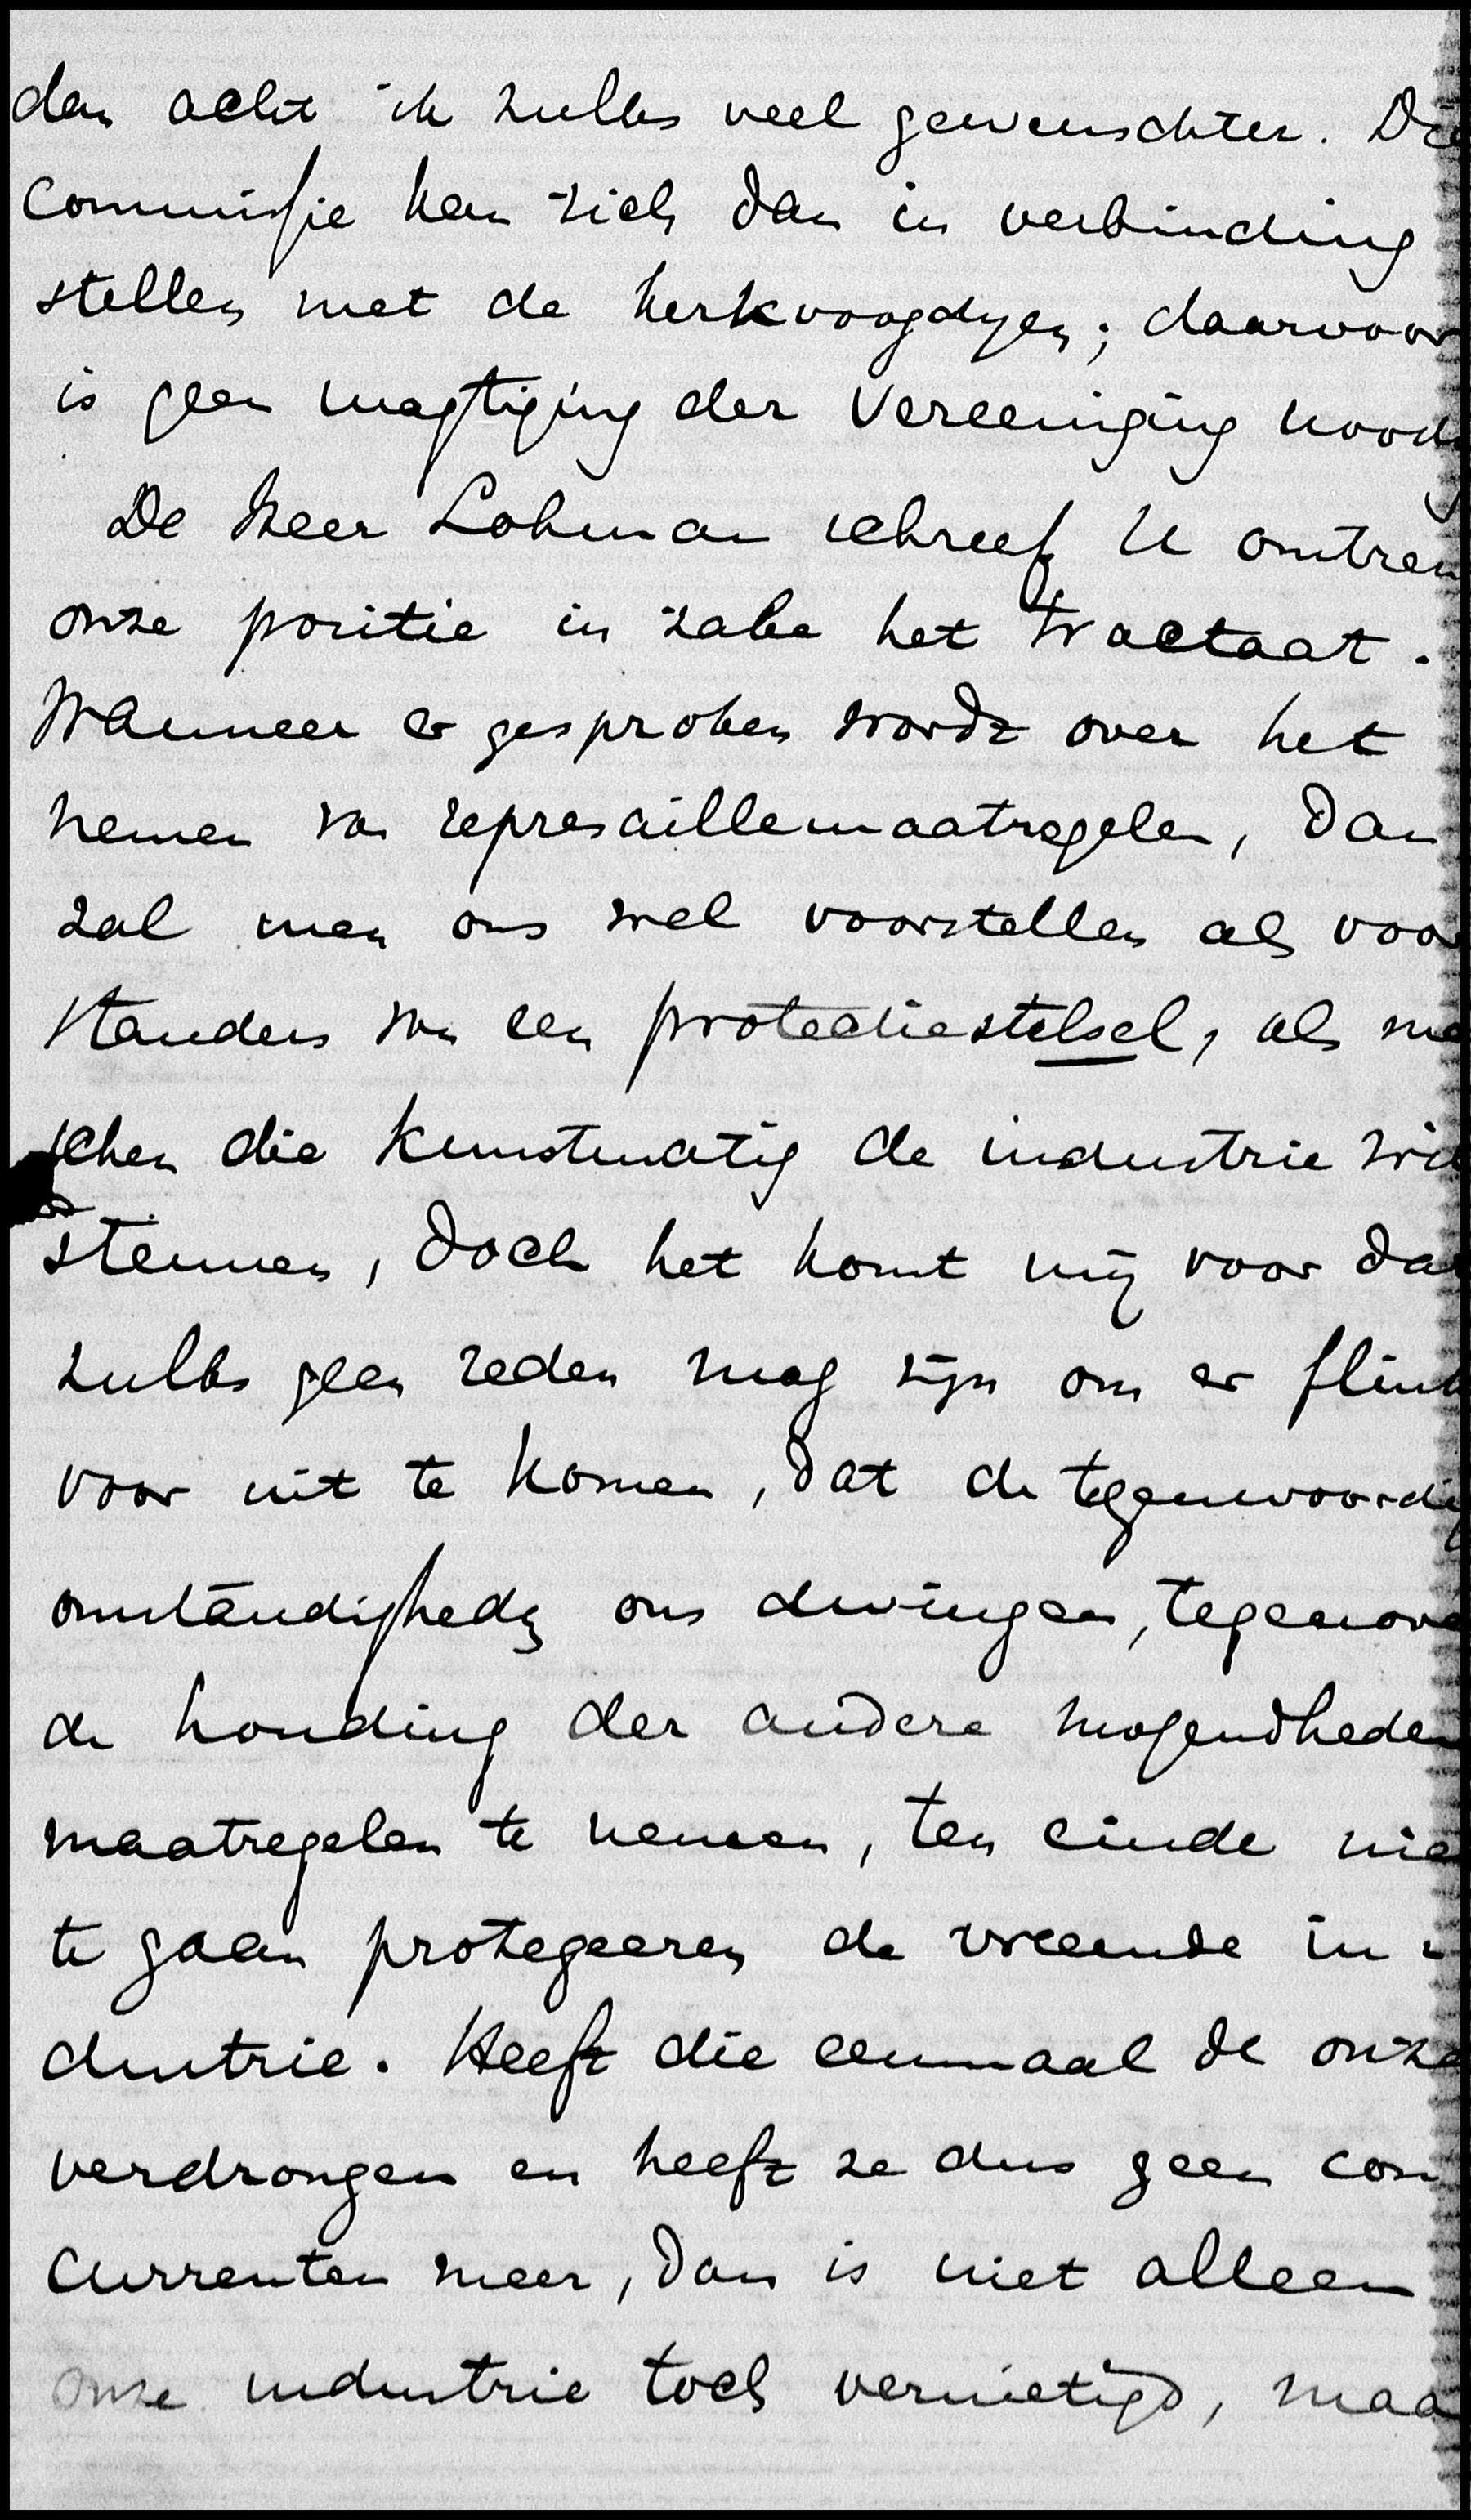 dan acht ik zulks veel gewenschter. Die
Commissie kan zich dan in verbinding
stellen met de kerkvoogdyen; daarvoor
is geen magtiging der Vereeniging noodig
De Heer Lohman schreef U omtren
onze positie in zake het tractaat.
Wanneer er gesproken wordt over het
nemen van represaillemaatregelen, dan
zal men ons wel voorstellen als voor
standers van een protectiestelsel, als me
schen die kunstmatig de industrie wil
steunen, doch het komt mij voor dat
zulks geen reden mag zijn om er flink
voor uit te komen, dat de tegenwoordig
omstandighedn ons dwingen, tegenove
de houding der andere mogendheden
maatregelen te nemen, ten einde nie
te gaan protegeeren de vreemde in
dustrie. Heeft die eenmaal de onze
verdrongen en heeft ze dus geen con
currenten meer, dan is niet alleen
onze industrie toch vernietigd, maa